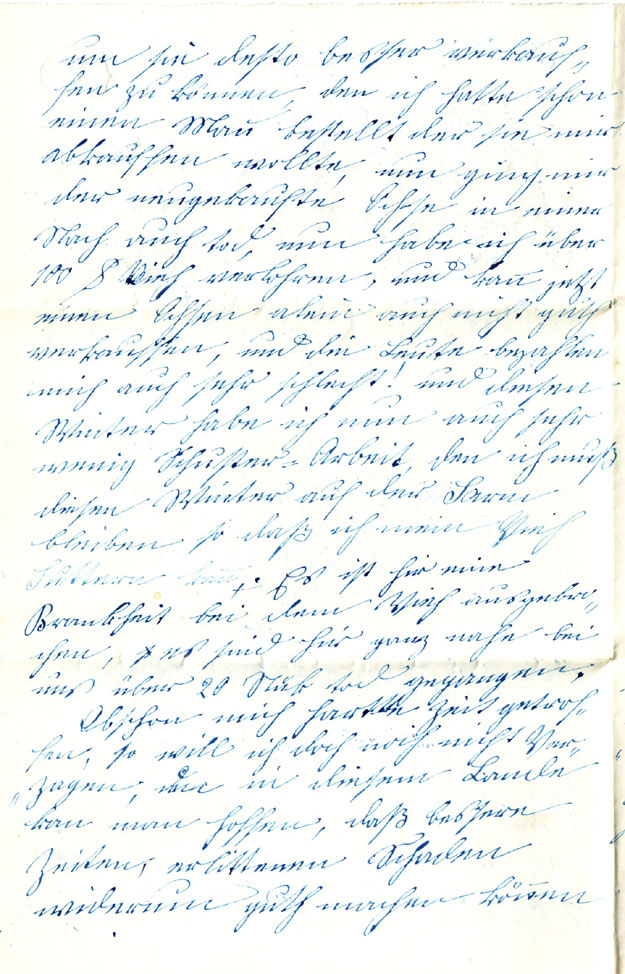 um sie desto besser verkauf-
fen zu können, den ich hatte schon
einen Man̄ bestellt der sie mir
abkauffen wollte, nun ging mir
der neugekaufte Ochse in einer
Nach auch tod, nun habe ich über
100 $ Vieh verlohren, und kan̄ jetzt
einen Ochsen alein auch nicht guth
verkauffen, und die Leute bezahlen
mich auch sehr schlecht. und diesen
Winter habe ich nun auch sehr
wenig Schuster-Arbeit, den ich muß
diesen Winter auf der Farm
bleiben so daß ich mein Vieh
Futtern kan̄. Es ist hir eine
Krankheit bei dem Vieh ausgebro-
chen, es sind hir ganz nahe bei
uns über 20 Stük tod gegangen.
Obschon mich hartte Zeit getrof-
fen, so will ich doch noch nicht Ver-
zagen, in diesem Lande
kan man hoffen, daß bessere
Zeiten, erlittenen Schaden
widerum guth machen kön̄en